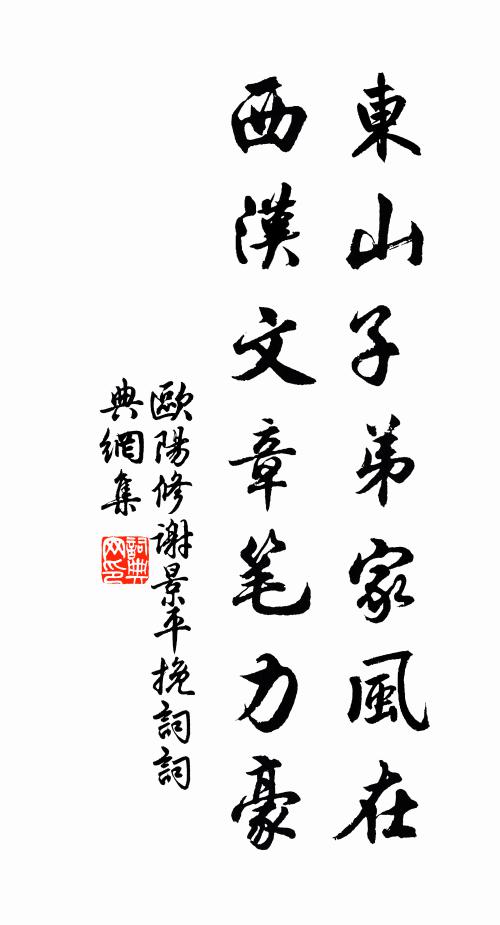 東山子弟家風在
西漢文章笔力豪
歐陽修謝景平挽詞詞
典網集
詞典
网印